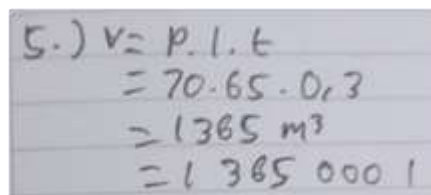 5.) V= p.l.t
= 70.65.0,3
= 1365 m³
= 1 365 000 l